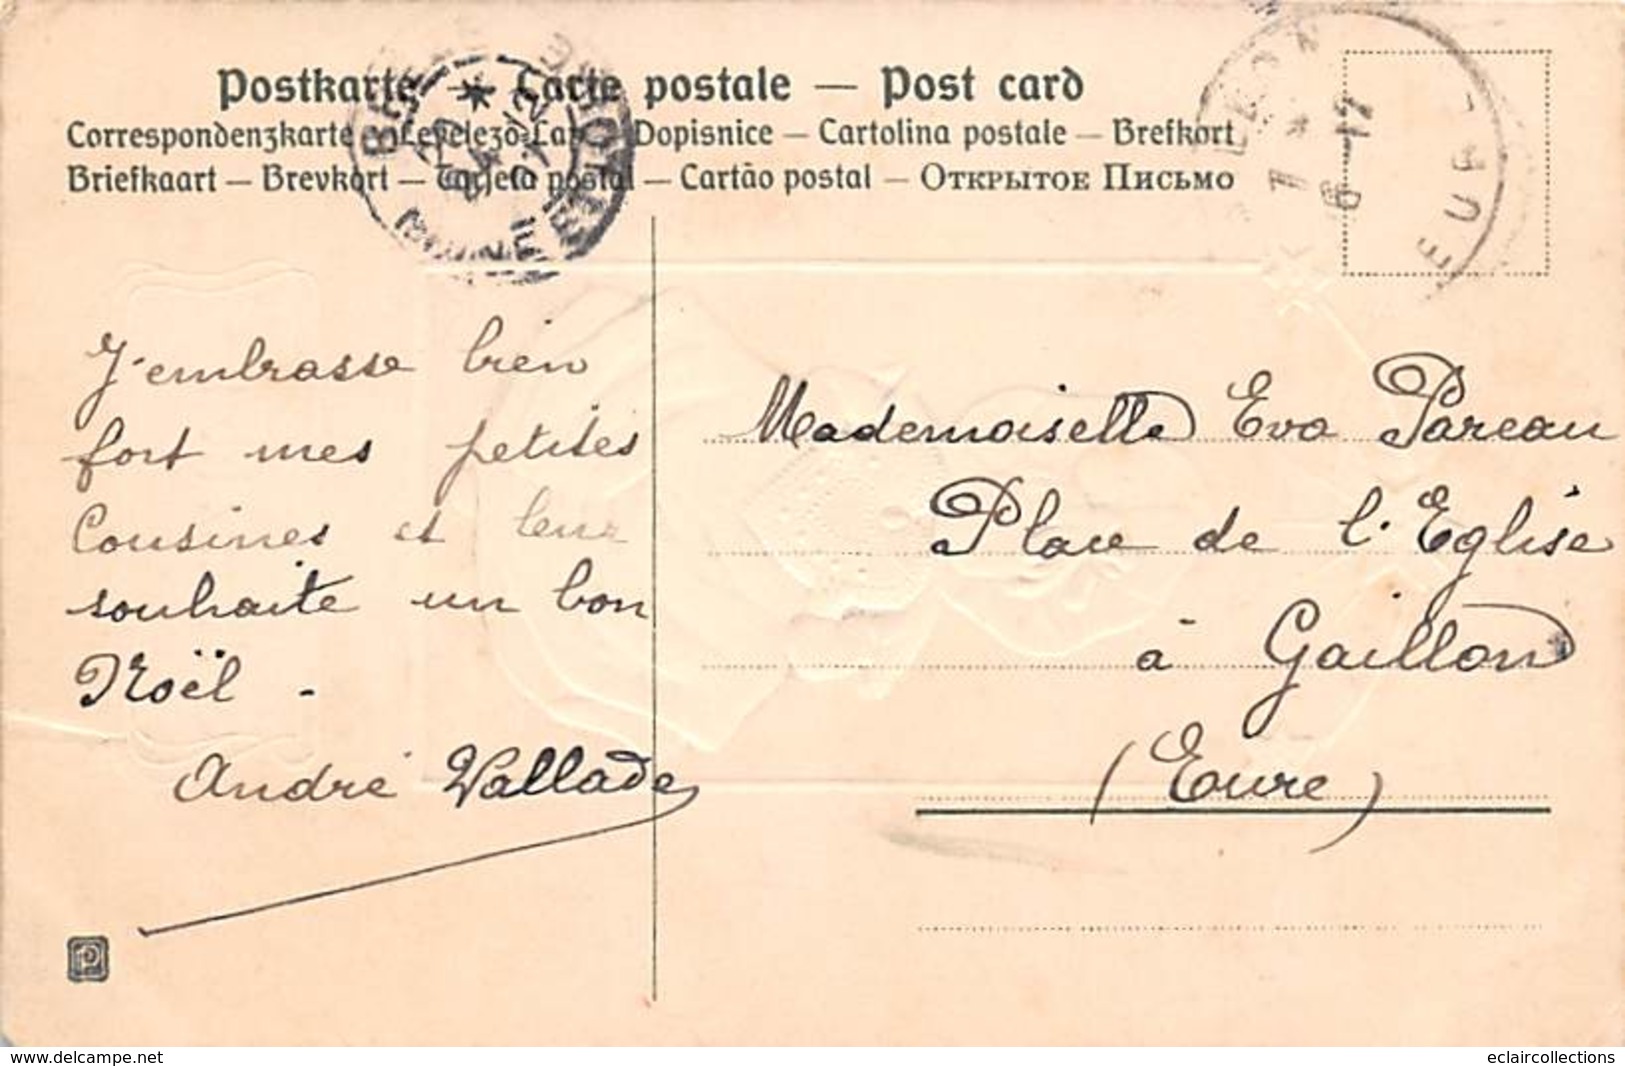 Postkarte — Carte postale — Post card
Correspondenzkarte – Levelező-Lap – Dopisnice – Cartolina postale – Brefkort
Briefkaart – Brevkort – Tarjeta postal – Cartão postal – Открытое Письмо
J'embrasse bien
fort mes petites
Cousines et leur
souhaite un bon
Noël -
André Vallade
Mademoiselle Eva Pareau
Place de l'Eglise
à Gaillon
(Eure)
P
www.delcampe.net
eclaircollections